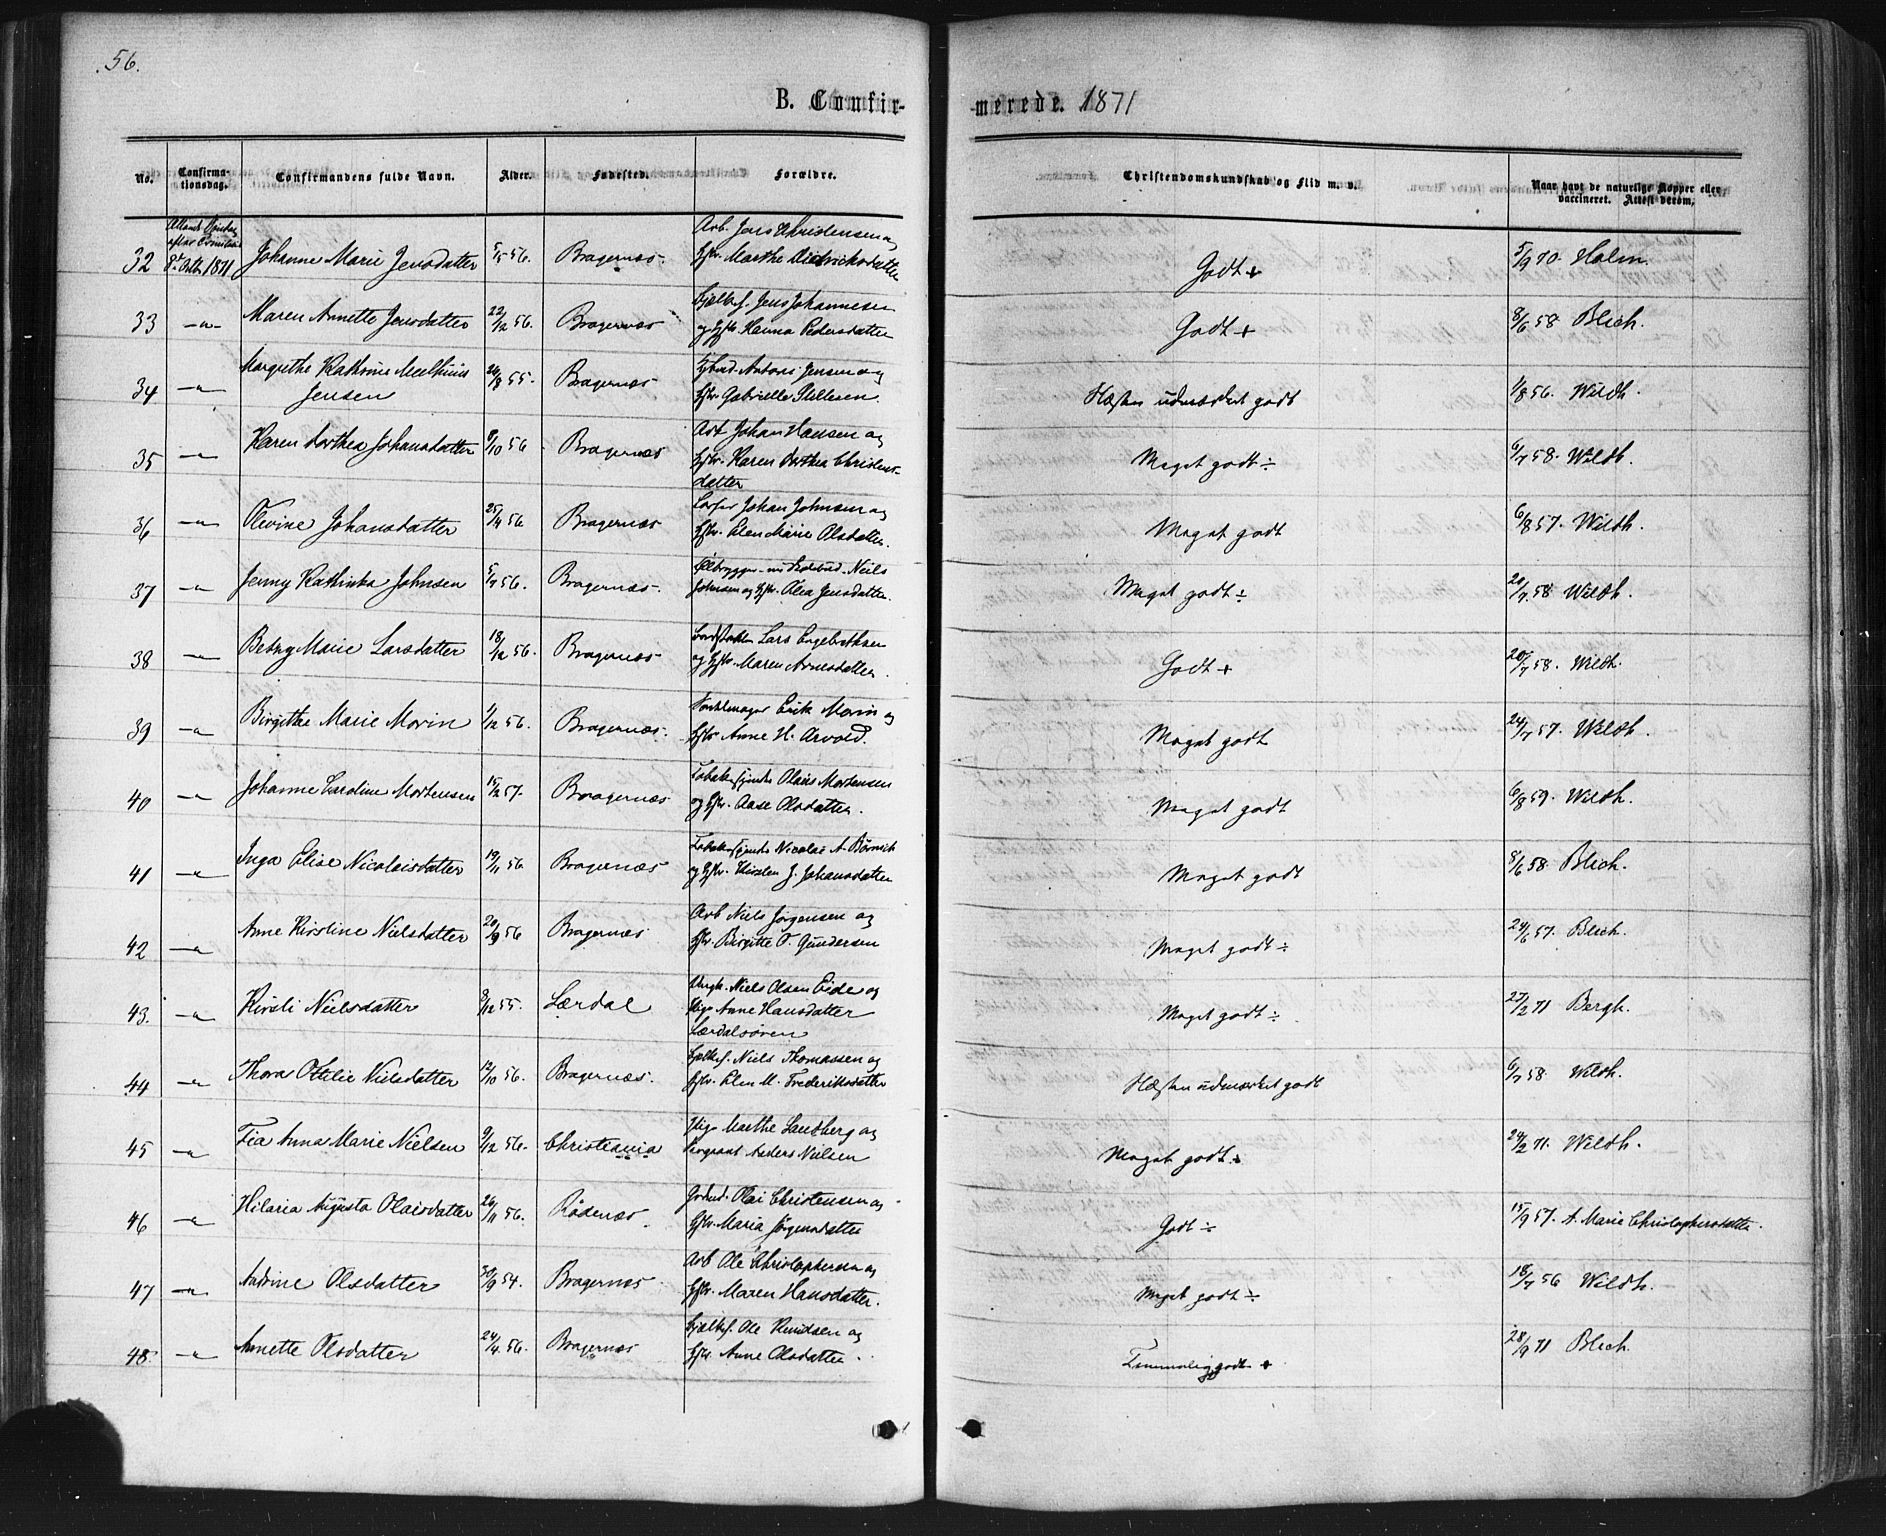 56.
B. Confir-
merede. 1871
No.
Confirma-
tionsdag.
Confirmandens fulde Navn.
Alder.
Fødested.
Forældre.
Christendomskundskab og Flid m. v.
Naar havt de naturlige Kopper eller
vaccineret. Attest derom.
8de Octb. 1871
32 Johanne Marie Jensdatter 5/5 56. Bragernæs. Arb. Jens Christensen og
Hstr. Marthe Didriksdatter Godt + 5/9 70. Holm.
33 -"- Maren Annette Jensdatter 22/12 56. Bragernæs Jens Johannesen
og Hstr. Hanna Pedersdatter Godt + 8/6 58 Blich.
34 -"- Margrethe Kathrine Meelhuus
Jensen 24/8 55. Bragernæs Anton Jensen og
Hstr. Gabrielle Pettersen. Næsten udmærket godt 1/8 56. Wildh.
35 -"- Karen Dorthea Johansdatter 9/10 56 Bragernæs Arb Johan Hansen og
Hstr. Karen Dorthea Christens-
datter Meget godt ÷ 6/7 58. Wildh.
36 -"- Olevine Johansdatter 25/4 56 Bragernæs Johan Johnsen og
Hstr. Elen Marie Olsdatter. Meget godt 6/8 57. Wildh.
37 -"- Jenny Kathinka Johnsen 5/7 56. Bragernæs. Niels
Johnsen og Hstr. Olea Jensdatter. Meget godt ÷ 20/7 58 Wildh.
38 -"- Betzy Marie Larsdatter 18/12 56. Bragernæs Lars Engebrethsen
og Hstr. Maren Arnesdatter. Godt + 20/7 58. Wildh.
39 -"- Birgithe Marie Morin 1/12 56. Bragernæs. Erik Morin og
Hstr Anne H. Arvold. Meget godt 24/7 57. Wildh.
40 -"- Johanne Caroline Mortensen 15/2 57. Bragernæs Olaus Mortensen
og Hstr. Aase Olsdatter. Meget godt 6/8 59. Wildh.
41 -"- Inga Elise Nicolaisdatter 19/11 56 Bragernæs Nicolai A.
og Hstr. J. Johansdatter Meget godt 8/6 58. Blich.
42 -"- Anne Kirstine Nielsdatter 20/9 56 Bragernæs Arb Niels Jørgensen og
Hstr. Birgitte O. Gundersen Meget godt ÷ 24/6 57. Blich.
43. -"- Kirsti Nielsdatter 8/12 55. Lærdal Ungk. Niels Olsen Eide og
Pige Anne Hansdatter
Lærdalsøren Meget godt ÷ 27/2 71 Bergh.
44 -"- Thora Ottilie Nielsdatter 12/10 56. Bragernæs. Niels Thomassen og
Hstr. Elen M. Frederiksdatter Næsten udmærket godt 6/7 58 Wildh.
45 -"- Fia Anna Marie Nielsen 9/12 56. Christiania Pige Marthe Sandberg og
Anders Nielsen Meget godt ÷ 24/2 71. Wildh.
46 -"- Hilaria Augusta Olaisdatter 26/11 56. Rødenæs. Olai Christensen og
Hstr. Maria Jørgensdatter Godt ÷ 15/9 57. A. Marie Christophersdatter.
47 -"- Andrine Olsdatter 30/9 54. Bragernæs Arb Ole Christophersen og
Hstr. Maren Hansdatter. Meget godt ÷ 18/7 56 Wildh.
48. -"- Annette Olsdatter 24/4 56. Bragernæs Ole Knudsen og
Hstr. Anne Olsdatter. Temmelig godt + 28/9 71 Blich.